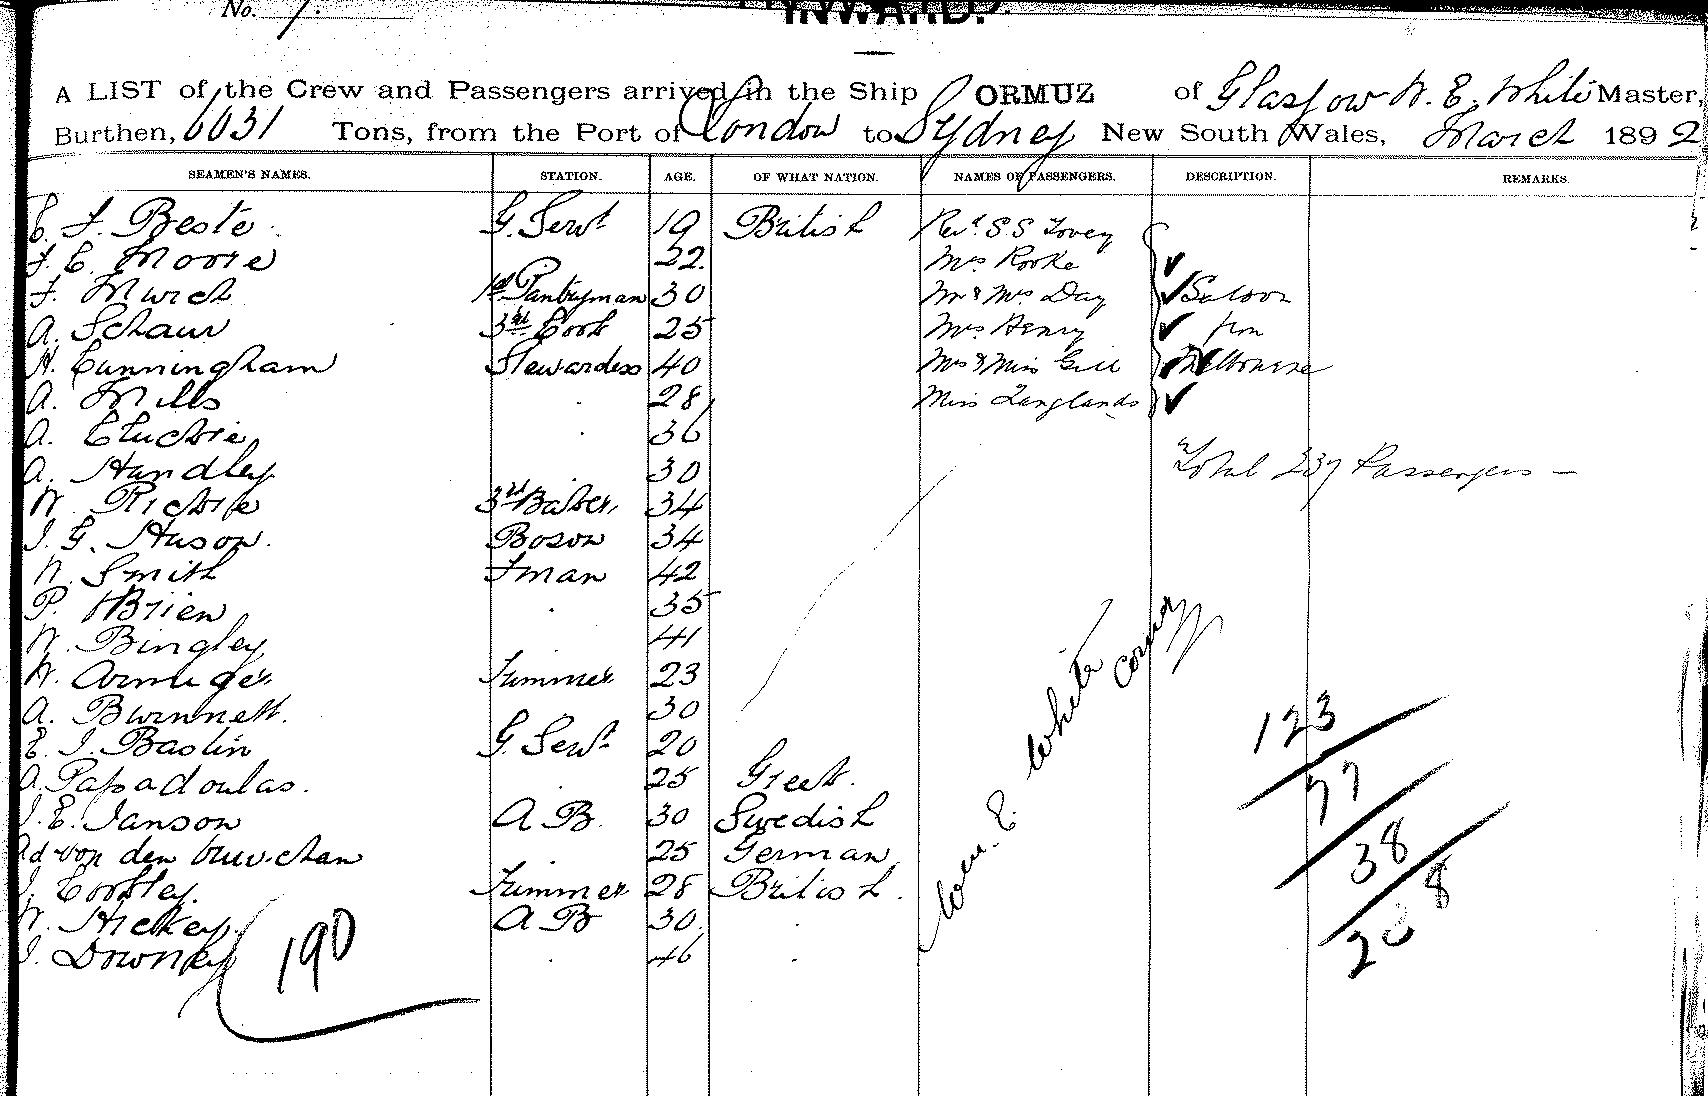 No. 7.
INWARD.
A LIST of the Crew and Passengers arrived in the Ship ORMUZ of Glasgow W. E. White Master,
Burthen, 6031 Tons, from the Port of London to Sydney New South Wales, March 1892
SEAMEN'S NAMES. STATION. AGE. OF WHAT NATION. NAMES OF PASSENGERS. DESCRIPTION. REMARKS.
E. J. Beste G. Servt 19 British Revd. S S Tovey
F. E. Moore 22 Mrs Rooke
F. March 1st Pantryman 30 Mr & Mrs Day Saloon
A. Schaur 3rd Cook 25 Mrs Henry from
H. Cunningham Stewardess 40 Mrs & Miss Gill Melbourne
A. Mills 28 Miss Langlands
A. 36
A. Handley 30 Total 237 Passengers
W. Ritchie 3rd Baker 34
J. G. Huson 34
W. Smith Fman 42
P. OBrien 35
W. Bingley 41
W. Armiger Trimmer 23
A. 30
E. J. Bastin G. Servt 20
A. Papadoulas. 25 Greek.
J. E. Janson A B. 30 Swedish
Ad von den 25 German
J. Trimmer 28 British.
W. Hickey A B 30
J. Downey 46
190
Wm. E. White
123
77
38
8